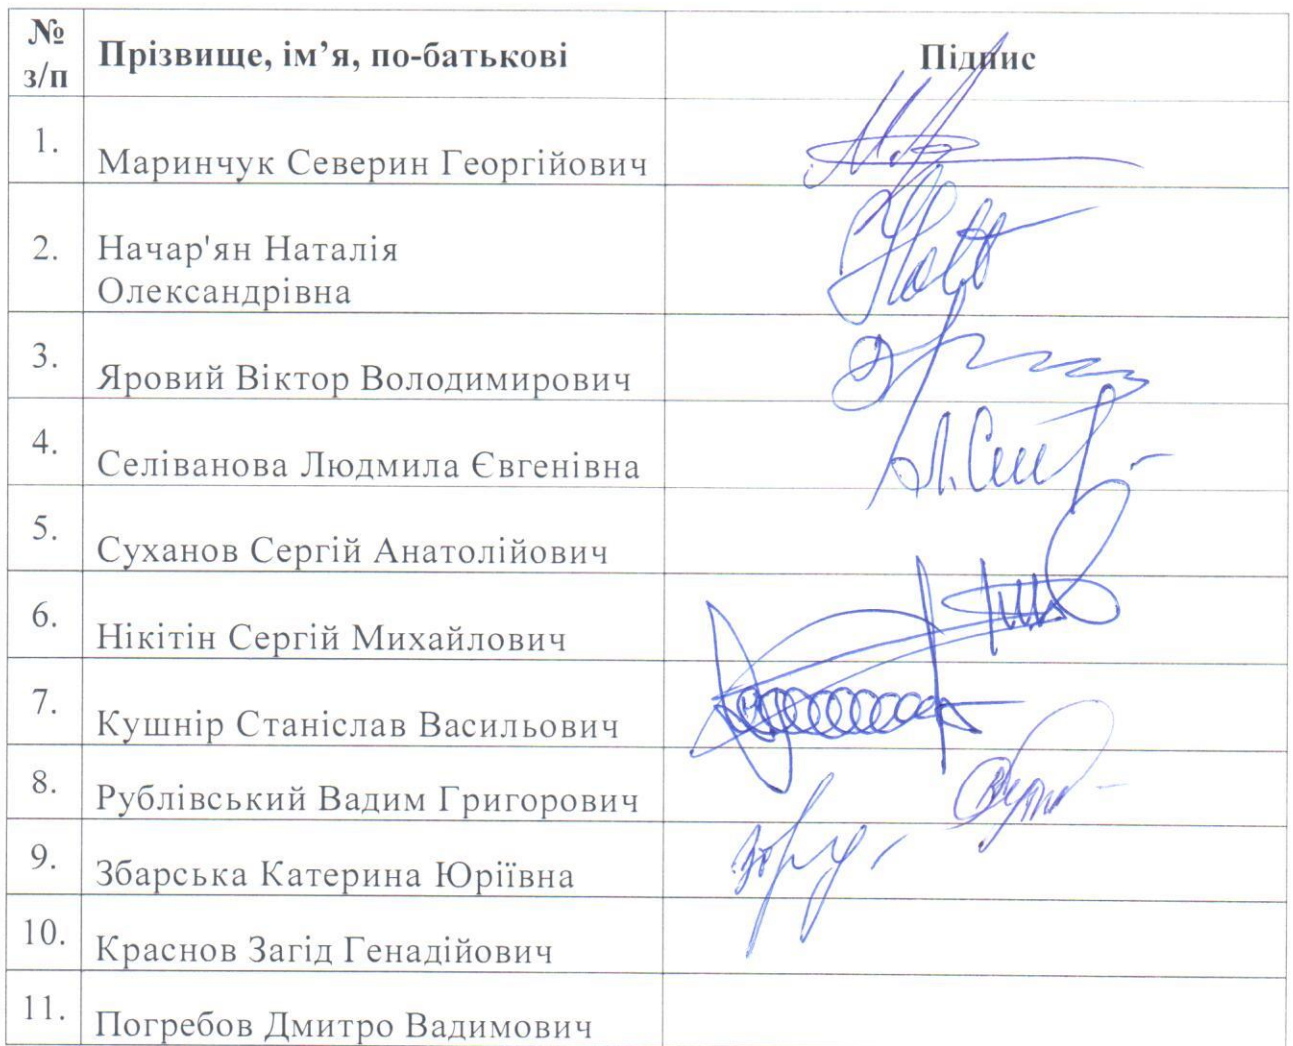 № з/п Прізвище, ім’я, по-батькові Підпис
1. Маринчук Северин Георгійович
2. Начар'ян Наталія
Олександрівна
3. Яровий Віктор Володимирович
4. Селіванова Людмила Євгенівна
5. Суханов Сергій Анатолійович
6. Нікітін Сергій Михайлович
7. Кушнір Станіслав Васильович
8. Рублівський Вадим Григорович
9. Збарська Катерина Юріївна
10. Краснов Загід Генадійович
11. Погребов Дмитро Вадимович